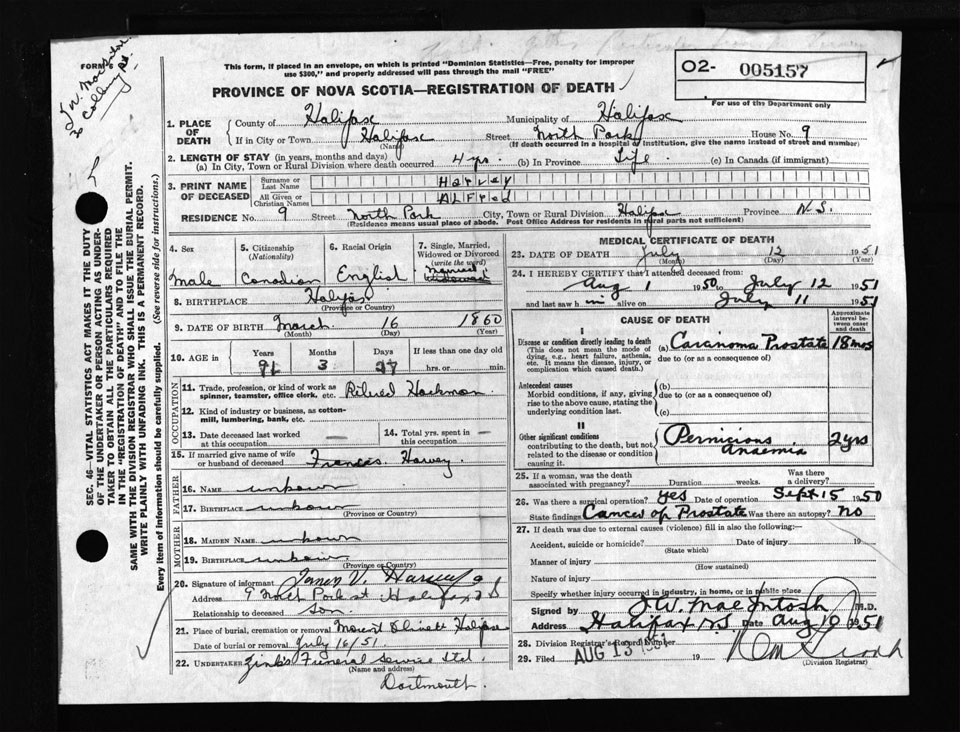 FORM 6
J.W. MacIntosh
This form, if placed in an envelope, on which is printed "Dominion Statistics—Free, penalty for improper
use $300," and properly addressed will pass through the mail "FREE"
O2- 005157
For use of the Department only
PROVINCE OF NOVA SCOTIA—REGISTRATION OF DEATH
1. PLACE OF DEATH
County of Halifax Municipality of Halifax
If in City or Town Halifax (Name) Street North Park House No. 9
(If death occurred in a hospital or institution, give the name instead of street and number)
2. LENGTH OF STAY (in years, months and days)
(a) In City, Town or Rural Division where death occurred 4 yrs. (b) In Province Life (c) In Canada (if immigrant)
3. PRINT NAME OF DECEASED
Surname or Last Name Harvey
All Given or Christian Names Alfred
RESIDENCE No. 9 Street North Park City, Town or Rural Division Halifax Province N.S.
(Residence means usual place of abode. Post Office Address for residents in rural parts not sufficient)
4. Sex
male
5. Citizenship (Nationality)
Canadian
6. Racial Origin
English
7. Single, Married, Widowed or Divorced (write the word)
8. BIRTHPLACE Halifax
(Province or Country)
9. DATE OF BIRTH March 16 1860
(Month) (Day) (Year)
10. AGE in
Years Months Days If less than one day old
91 3 27 hrs. or min.
OCCUPATION
11. Trade, profession, or kind of work as spinner, teamster, office clerk, etc. Retired Hackman
12. Kind of industry or business, as cotton-mill, lumbering, bank, etc.
13. Date deceased last worked at this occupation —
14. Total yrs. spent in this occupation —
15. If married give name of wife or husband of deceased Frances Harvey
FATHER
16. NAME unkown
17. BIRTHPLACE unkown
(Province or Country)
MOTHER
18. MAIDEN NAME unkown
19. BIRTHPLACE unkown
(Province or Country)
20. Signature of informant
Address 9 North Park st Halifax N S
Relationship to deceased son.
21. Place of burial, cremation or removal Mount Olivett Halifax
Date of burial or removal July 16/51.
22. UNDERTAKER Zink's Funeral Service Ltd.
(Name and address)
Dartmouth.
MEDICAL CERTIFICATE OF DEATH
23. DATE OF DEATH July 12 1951
(Month) (Day) (Year)
24. I HEREBY CERTIFY that I attended deceased from:
Aug 1 1950 to July 12 1951
and last saw h im alive on July 11 1951
CAUSE OF DEATH
Approximate interval between onset and death
I
Disease or condition directly leading to death
(This does not mean the mode of dying, e.g., heart failure, asthenia, etc. It means the disease, injury, or complication which caused death.)
(a) Carcinoma Prostate 18 mos
due to (or as a consequence of)
Antecedent causes
Morbid conditions, if any, giving rise to the above cause, stating the underlying condition last.
(b)
due to (or as a consequence of)
(c)
II
Other significant conditions
contributing to the death, but not related to the disease or condition causing it.
Pernicious anaemia 2 yrs
25. If a woman, was the death associated with pregnancy? Duration weeks. Was there a delivery?
26. Was there a surgical operation? yes Date of operation Sept 15 1950
State findings Cancer of Prostate Was there an autopsy? no
27. If death was due to external causes (violence) fill in also the following:—
Accident, suicide or homicide? Date of injury 19
(State which)
Manner of injury
(How sustained)
Nature of injury
Specify whether injury occurred in industry, in home, or in public place
Signed by J.W. MacIntosh M.D.
Address Halifax NS Date Aug 10 1951
28. Division Registrar's Record Number
29. Filed AUG 13 1951 19
(Division Registrar)
SEC. 46—VITAL STATISTICS ACT MAKES IT THE DUTY
OF THE UNDERTAKER OR PERSON ACTING AS UNDER-
TAKER TO OBTAIN ALL THE PARTICULARS REQUIRED
IN THE "REGISTRATION OF DEATH" AND TO FILE THE
SAME WITH THE DIVISION REGISTRAR WHO SHALL ISSUE THE BURIAL PERMIT.
WRITE PLAINLY WITH UNFADING INK. THIS IS A PERMANENT RECORD.
Every item of information should be carefully supplied. (See reverse side for instructions.)